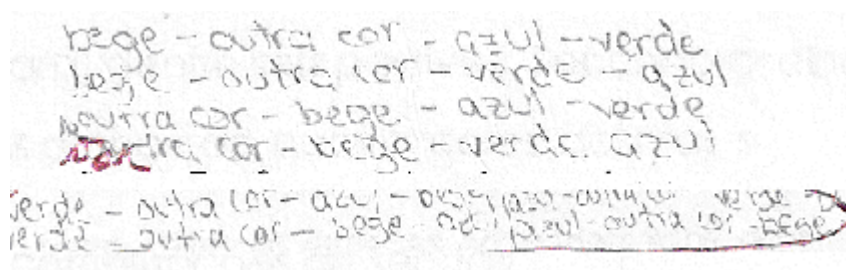 bege - outra cor - azul - verde
bege - outra cor - verde - azul
outra cor - bege - azul - verde
outra cor - bege - verde. azul
verde - outra cor - azul - bege azul - outra cor verde
verde - outra cor - bege azul azul - outra cor - bege